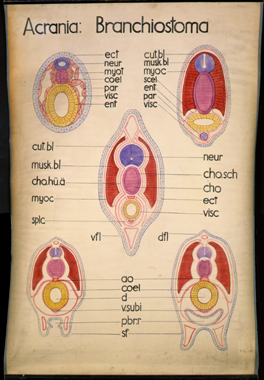 Acrania: Branchiostoma
ect
neur
myot
coel
par
visc
ent
cut.bl
musk.bl
myoc
scel
ent
par
visc
cut.bl
musk.bl
cho.hü.ä
myoc
splc
neur
cho.sch
cho
ect
visc
vfl
dfl
ao
coel
d
v.subi
pbr.r
sf